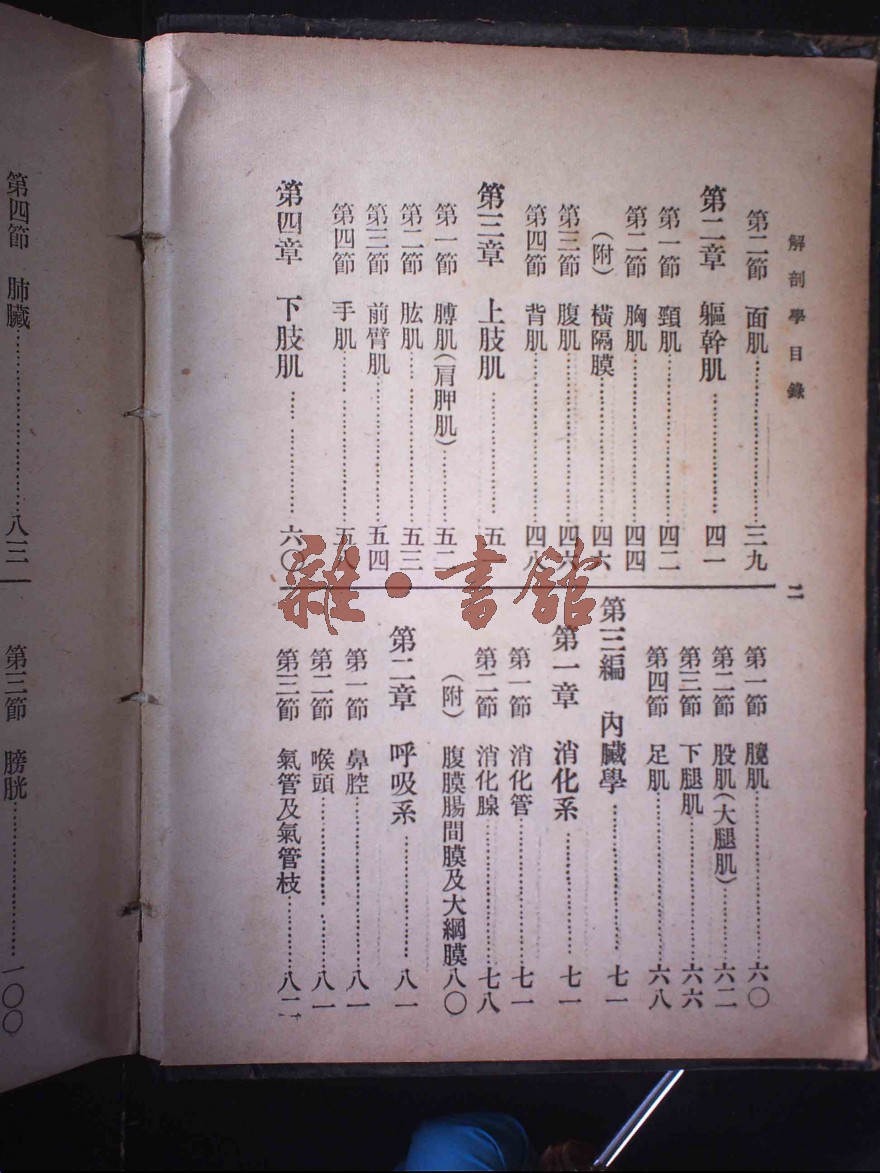 解剖學目錄
二
第二節 面肌……三九
第二章 軀幹肌……四一
第一節 頸肌……四二
第二節 胸肌……四四
（附） 橫隔膜……四六
第三節 腹肌……四六
第四節 背肌……四八
第三章 上肢肌……五
第一節 膊肌（肩胛肌）……五二
第二節 肱肌……五三
第三節 前臂肌……五四
第四節 手肌……五八
第四章 下肢肌……六〇
第一節 臗肌……六〇
第二節 股肌（大腿肌）……六二
第三節 下腿肌……六六
第四節 足肌……六八
第三編 內臟學……七一
第一章 消化系……七一
第一節 消化管……七一
第二節 消化腺……七八
（附） 腹膜腸間膜及大網膜八〇
第二章 呼吸系……八一
第一節 鼻腔……八一
第二節 喉頭……八一
第三節 氣管及氣管枝……八二
第四節 肺臟……八三
第三節 膀胱……一〇〇
雜·書館